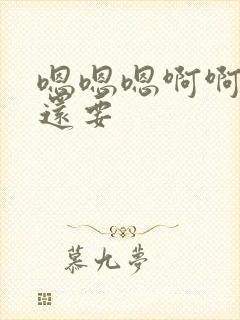 嗯嗯嗯啊啊
還要
慕九夢